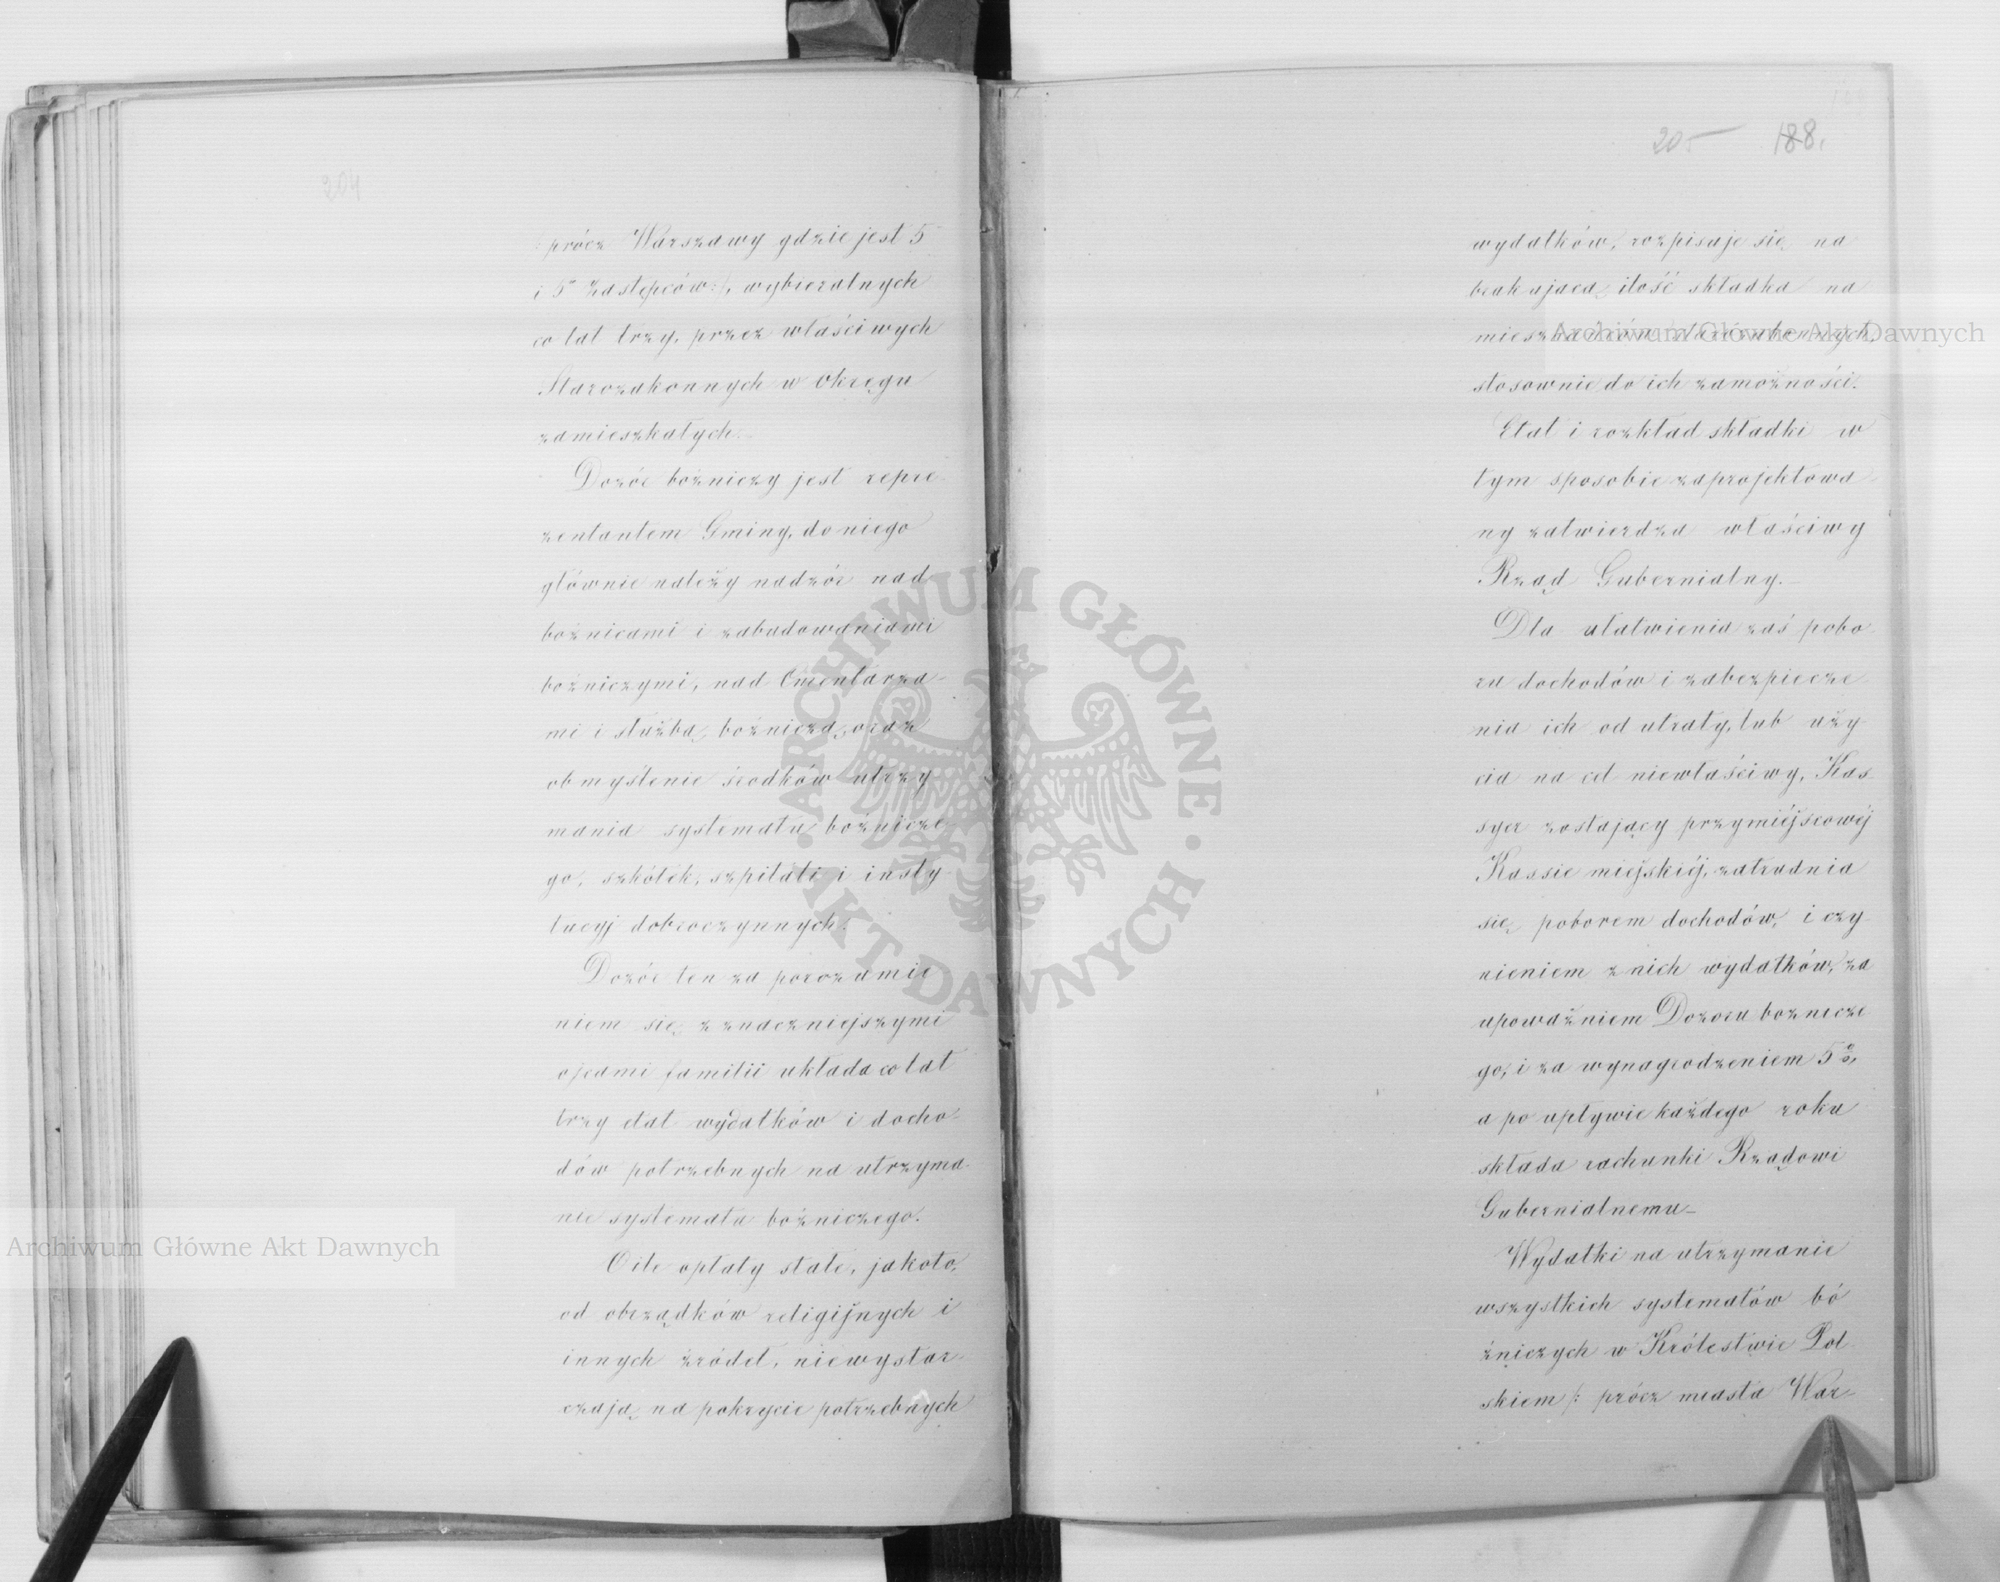 204
prócz Warszawy gdzie jest 5
i 5 zastępców:/, wybieralnych
co lat trzy, przez właściwych
Starozakonnych w Okręgu
zamieszkałych.
Dozór bożniczy jest repre
zentantem Gminy, do niego
głównie należy nadzór nad
bożnicami i zabudowaniami
bożniczymi, nad Cmentarza-
mi i służbą bożniczą, oraz
obmyślenie środków utrzy
mania systematu bożnicze
go, szkółek, szpitali i insty
tucyj dobroczynnych.
Dozór ten za porozumie
niem się z znaczniejszymi
ojcami familii układa co lat
trzy etat wydatków i docho-
dów potrzebnych na utrzyma-
nie systematu bożniczego.
O ile opłaty stałe, jakoto,
od obrządków religijnych i
innych źródeł, niewystar-
czają na pokrycie potrzebnych
205 188.
wydatków, rozpisuje się na
brakującą ilość składka na
mieszkańców starozakonnych,
stosownie do ich zamożności.
Etat i rozkład składki w
tym sposobie zaprojektowa
ny zatwierdza właściwy
Rząd Gubernialny.
Dla ułatwienia zaś pobo
ru dochodów i zabezpiecze
nia ich od utraty, lub uży-
cia na cel niewłaściwy, Kas
syer zostający przymiéjscowéj
Kassie miejskiéj, zatrudnia
się poborem dochodów, i czy-
nieniem z nich wydatków, za
upoważniem Dozoru boznicze
go, i za wynagrodzeniem 5%,
a po upływie każdego roku
składa rachunki Rządowi
Gubernialnemu-
Wydatki na utrzymanie
wszystkich systematów bó
żniczych w Królestwie Pol
skiem /: prócz miasta War-
Archiwum Główne Akt Dawnych
Archiwum Główne Akt Dawnych
ARCHIWUM GŁÓWNE · AKT DAWNYCH ·